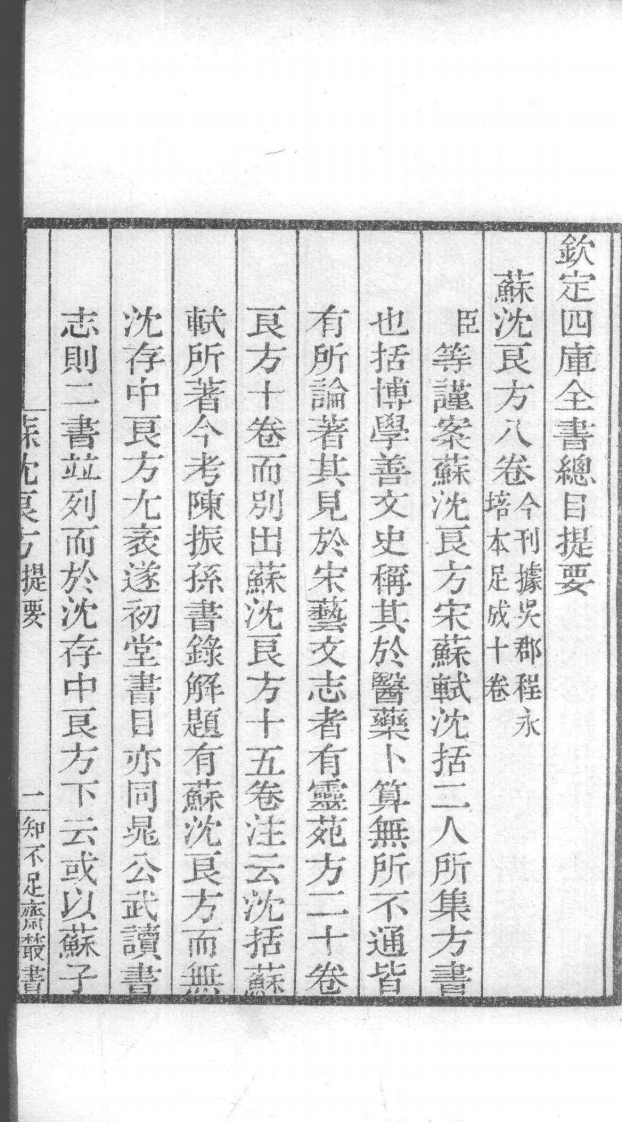 欽定四庫全書總目提要
蘇沈良方八卷今刊據吳郡程永
培本足成十卷
臣等謹案蘇沈良方宋蘇軾沈括二人所集方書
也括博學善文史稱其於醫藥卜算無所不通皆
有所論著其見於宋藝文志者有靈苑方二十卷
良方十卷而別出蘇沈良方十五卷注云沈括蘇
軾所著今考陳振孫書錄解題有蘇沈良方而無
沈存中良方尤袤遂初堂書目亦同晁公武讀書
志則二書並列而於沈存中良方下云或以蘇子
蘇沈良方提要
知不足齋叢書